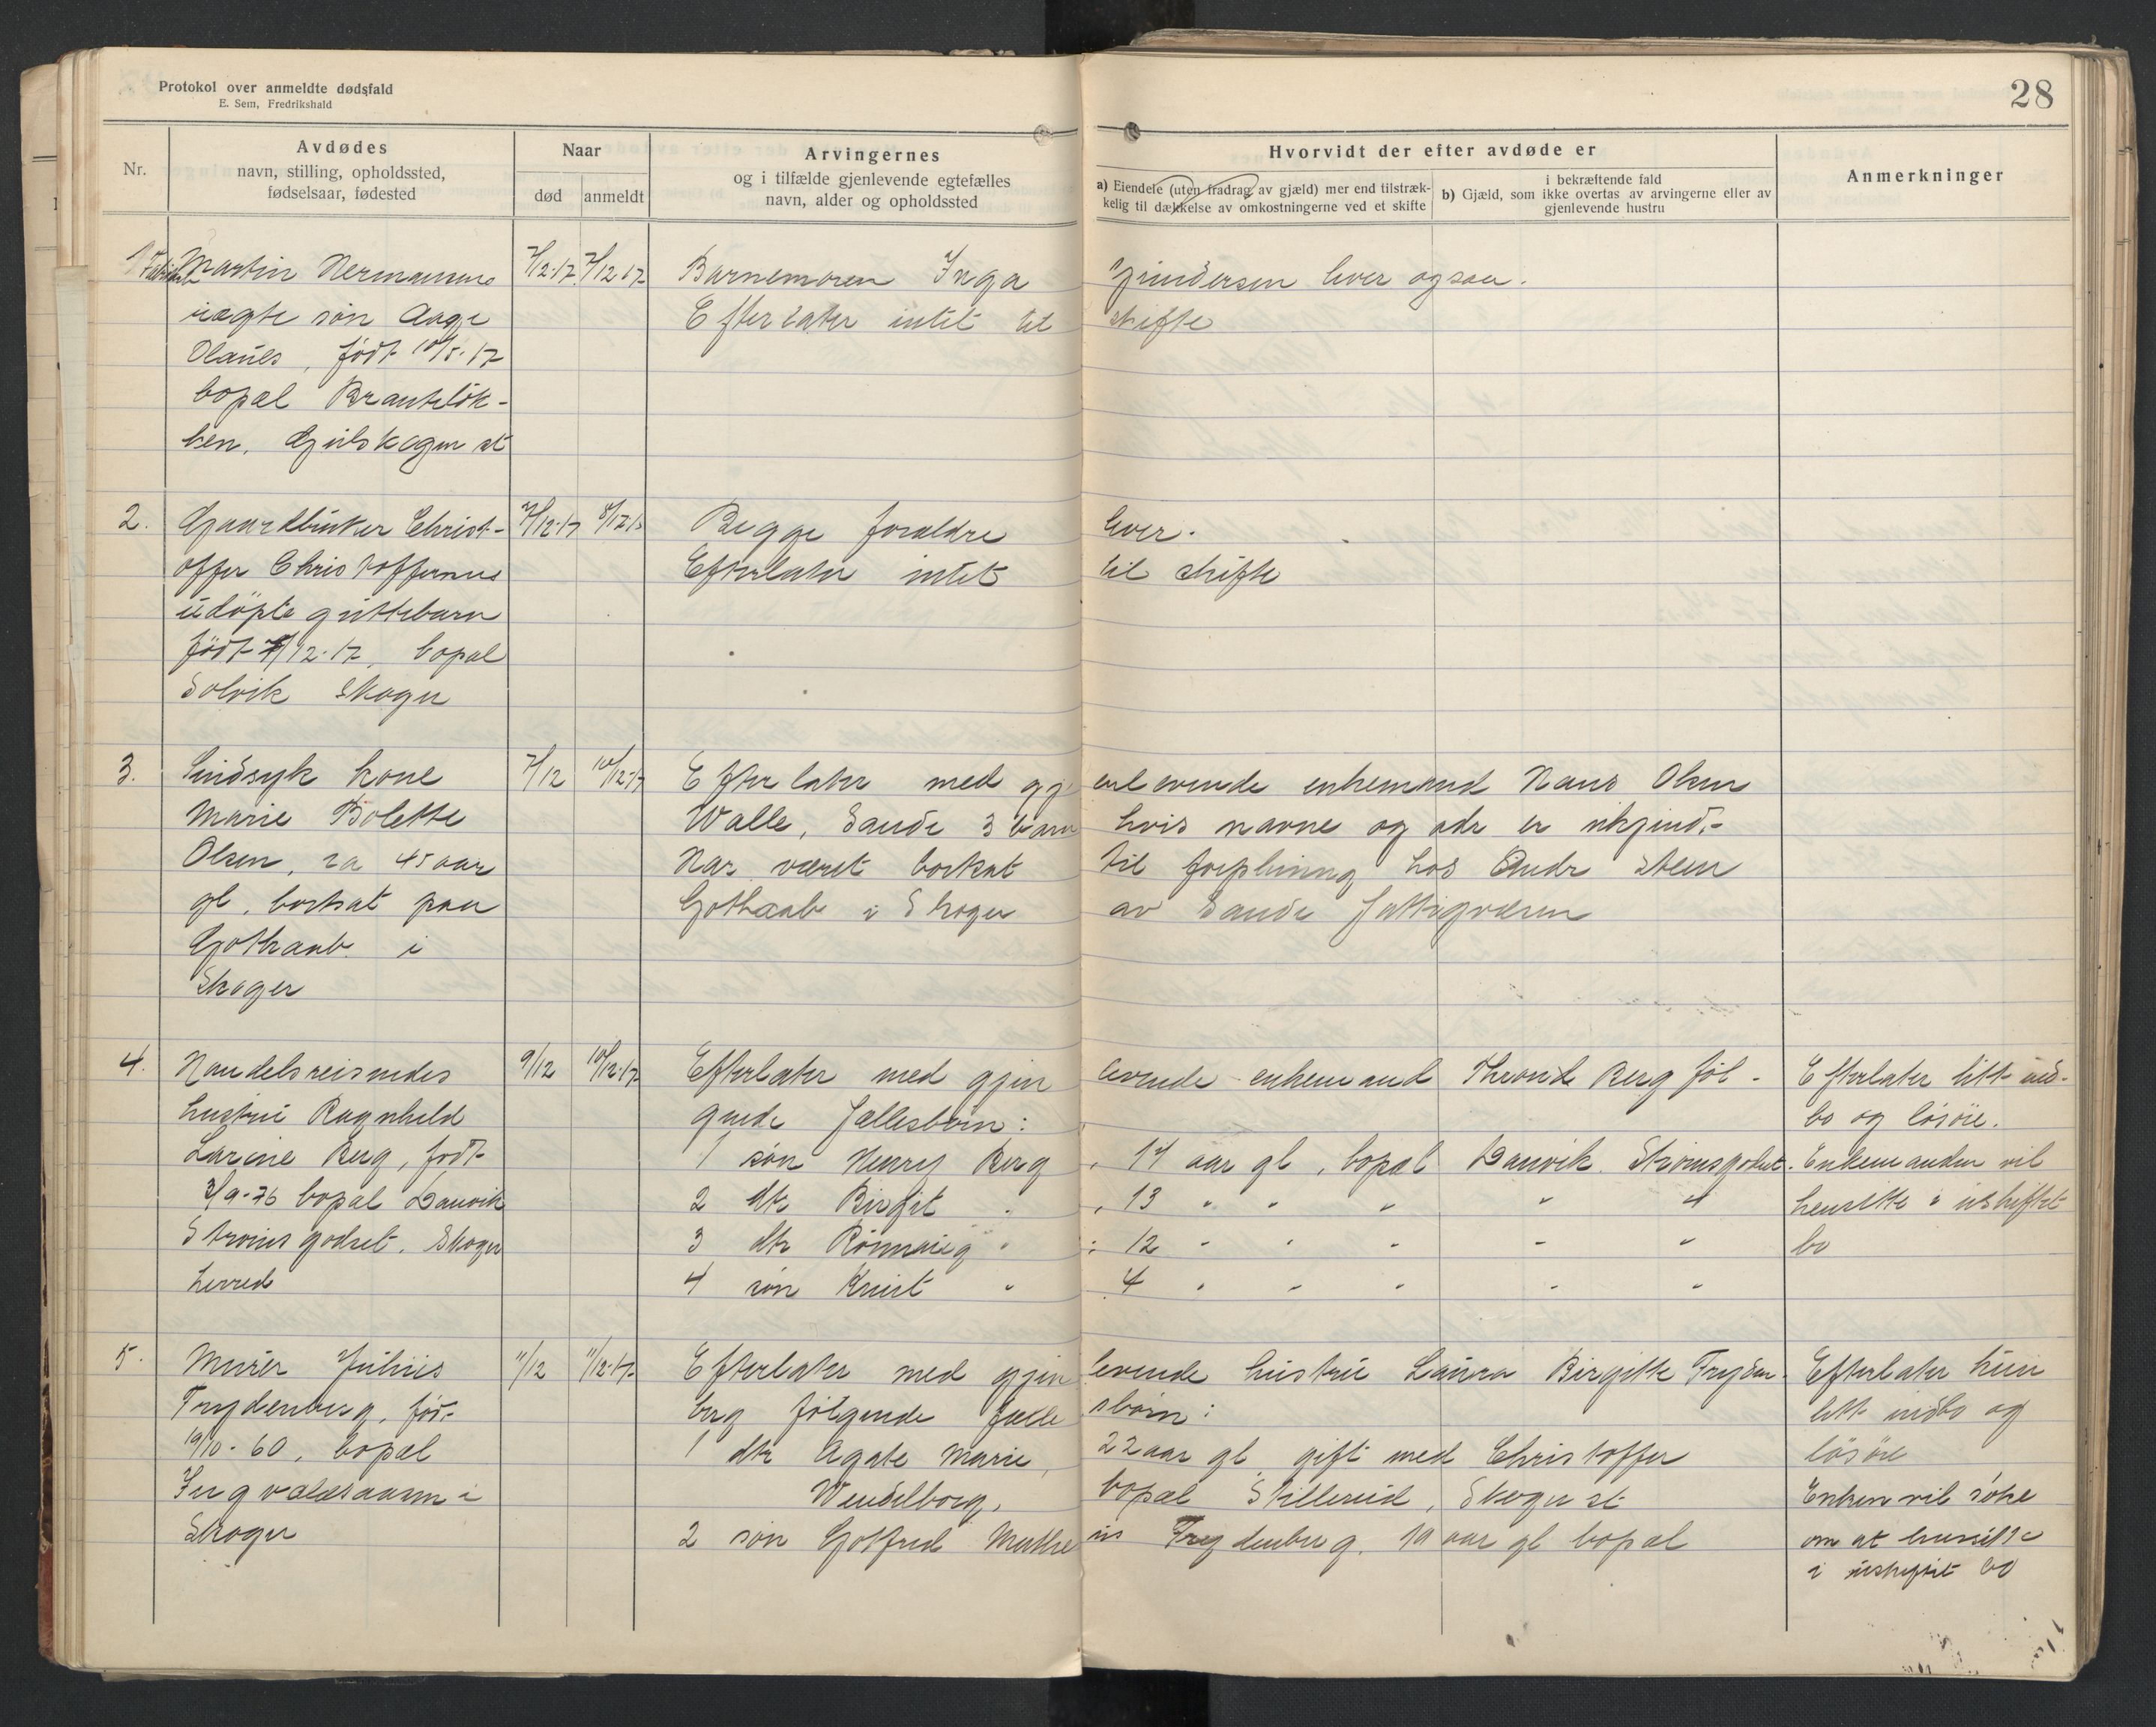 Protokol over anmeldte dødsfald
E. Sem, Fredrikshald
28
Nr.
Avdødes
navn, stilling, opholdssted,
fødselsaar, fødested
Naar
død
anmeldt
Arvingernes
og i tilfælde gjenlevende egtefælles
navn, alder og opholdssted
Hvorvidt der efter avdøde er
a) Eiendele (uten fradrag av gjæld) mer end tilstræk-
kelig til dækkelse av omkostningerne ved et skifte
i bekræftende fald
b) Gjæld, som ikke overtas av arvingerne eller av
gjenlevende hustru
Anmerkninger
1 Martin Hermansens 7/12-17 7/12 17 Barnemoren Inga Gundersen lever ogsaa.
uægte søn Aage Efterlater intet til skifte
Olaues, født 10/5-17
bopæl Branteløk-
ken, Gulskogen st
2. Gaardbruker Christ- 7/12-17 8/12 17 Begge foraldre lever.
offer Christoffersens Efterlater intet til skifte
udöpte guttebarn
født 7/12-17, bopæl
Solvik Skoger
3. Sindsyk kone 7/12 10/12-17 Efterlater med gjenlevende enkemand Hans Olsen
Marie Bolette Walle, Sande 3 barn hvis navne og adr er ukjend.-
Olsen, ca 45 aar Har været bortsat til forpleining hos Steen
gl. bortsat paa Gothaab i Skoger av Sande Fattigvæsen
Gothaab i
Skoger
4. Handelsreisendes 9/12 10/12-17 Efterlater med gjenlevende enkemand Thronds Berg føl- Efterlater litt ind-
hustru Ragnhild gende fællesbörn: bo og løsøre.
Larine Berg, født 1 søn Henry Berg, 14 aar gl, bopæl Danvik Strømsgodset. Enkemanden vil
3/9-76 bopæl Danvik 2 dtr Birgit " , 13 " " " " " hensitte i uskiftet
Strømsgodset, Skoger 3 dtr Rönnaug " : 12 " " " " " bo
herred 4 søn Knut " 4 " " " " "
5. Murer Julius 11/12 11/12-17 Efterlater med gjenlevende hustru Laura Birgitte Fryden- Efterlater kun
Frydenberg, født berg følgende fællesbörn: litt indbo og
19/10-60, bopæl 1 dtr Agate Marie, 22 aar gl, gift med Christoffer løsøre
Ingvaldsaasen i Wendelborg, bopæl Skillerud, Skoger st Enken vil søke
Skoger 2 søn Gotfred Matheus Frydenberg, 19 aar gl bopæl om at hensitte
i uskiftet bo